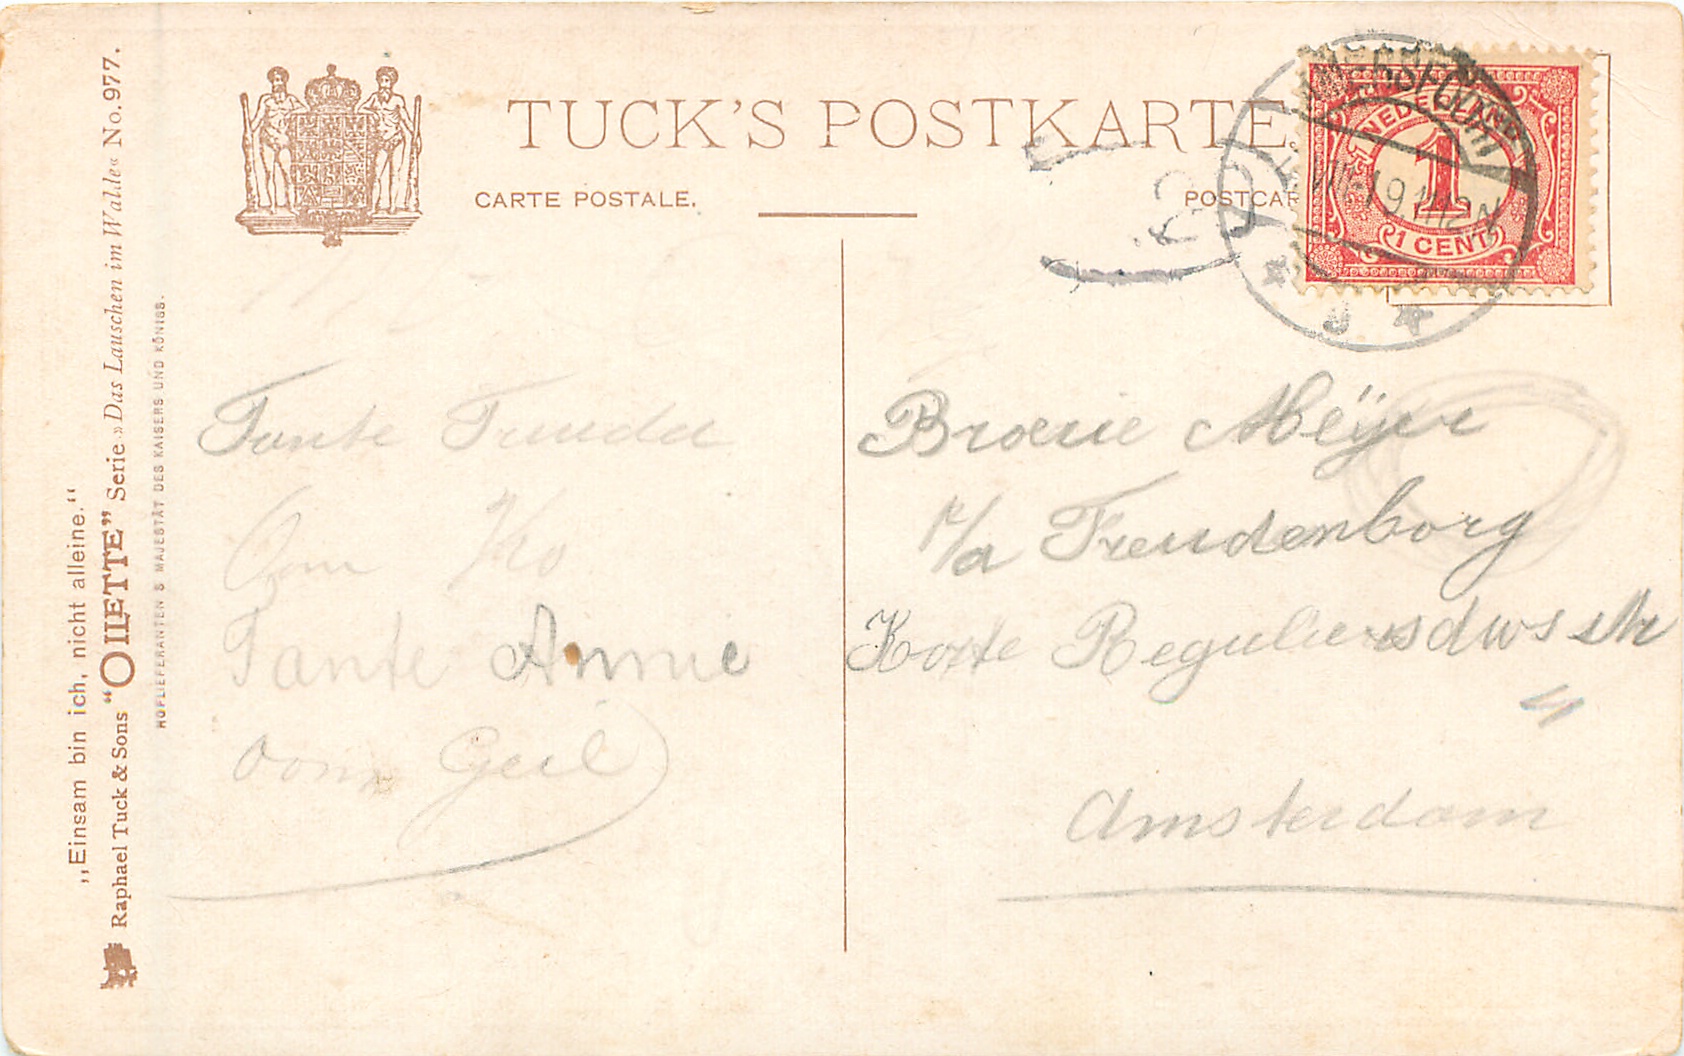 TUCK'S POSTKARTE
CARTE POSTALE.
POSTCAR
NEDERLAND
1
1 CENT
12N
Tante Truida
Oom Ko
Tante Annie
Oom Geil
Broerie Meÿer
p/a Freudenborg
Korte Reguliersdwsstr
4
Amsterdam
„Einsam bin ich, nicht alleine.“
Raphael Tuck & Sons “OILETTE” Serie »Das Lauschen im Walde« No. 977.
HOFLIEFERANTEN S MAJESTÄT DES KAISERS UND KÖNIGS.